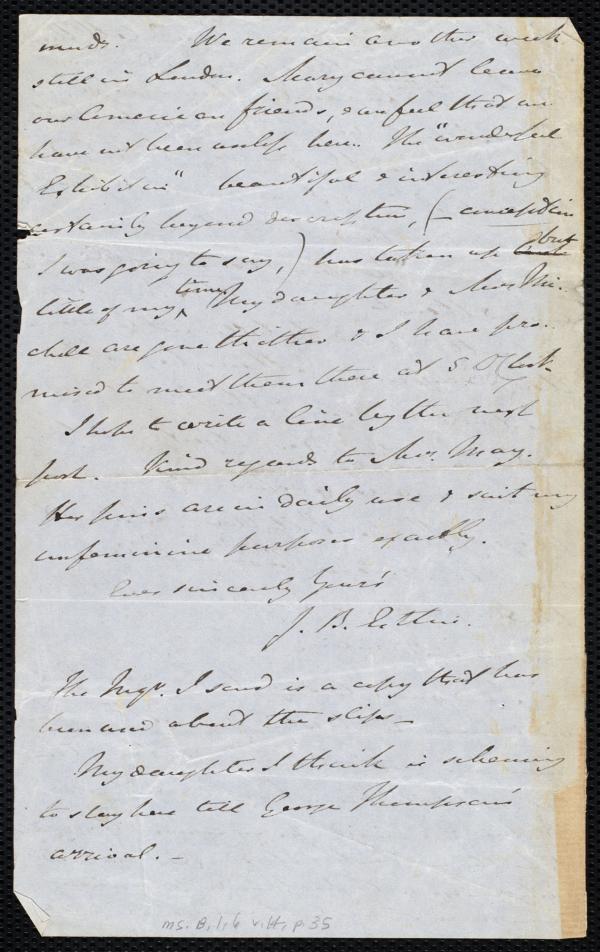 minds. We remain another week
still in London. Mary cannot leave
our American friends, & we feel that we
have not been useless here. The "wonderful
Exhibition" beautiful & interesting
certainly beyond description, (- conception
I was going to say,) has taken up but
little of my time. My daughter & Mrs. Mi-
chell are gone thither & I have pro-
mised to meet them there at 5 O'Clock
I hope to write a line by the next
post. Kind regards to Mrs. May.
Her pins are in daily use & suit my
unfeminine purposes exactly.
Ever sincerely Yours
J. B. Estlin.
The Mgr. I send is a copy that has
been used about the slips-
My daughter I think is scheming
to stay here till George Thompson's
arrival. -
ms. B.1.6 v.4, p.35